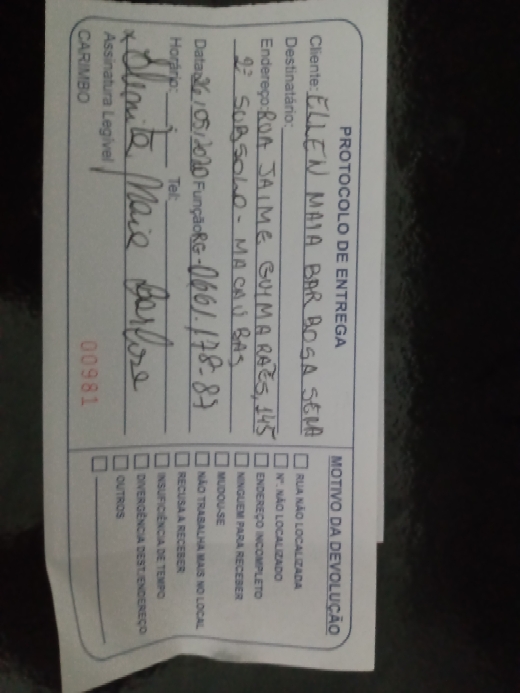 PROTOCOLO DE ENTREGA
Cliente: ELLEN MAIA BARBOSA SENA
Destinatário:
Endereço: RUA JAIME GUIMARAES, 145
2º SUBSOLO - MACAÚBAS
Data: 26/05/2020 Função RG-0661.178-87
Horário: : Tel:
x Maia Barbosa
Assinatura Legível
CARIMBO
00981
MOTIVO DA DEVOLUÇÃO
RUA NÃO LOCALIZADA
Nº. NÃO LOCALIZADO
ENDEREÇO INCOMPLETO
NINGUEM PARA RECEBER
MUDOU-SE
NÃO TRABALHA MAIS NO LOCAL
RECUSA A RECEBER
INSUFICIÊNCIA DE TEMPO
DIVERGÊNCIA DEST./ENDEREÇO
OUTROS